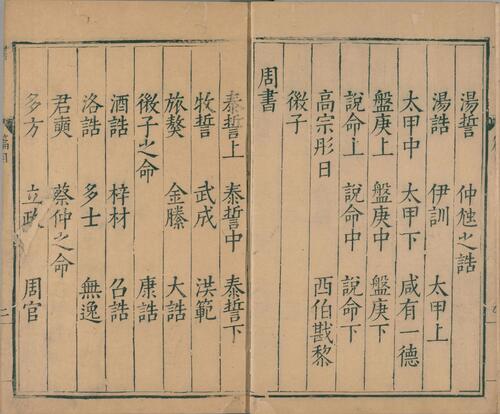 湯誓 仲虺之誥
湯誥 伊訓 太甲上
太甲中 太甲下 咸有一德
盤庚上 盤庚中 盤庚下
說命上 說命中 說命下
高宗肜日 西伯戡黎
微子
周書
泰誓上 泰誓中 泰誓下
牧誓 武成 洪範
旅獒 金縢 大誥
微子之命 康誥
酒誥 梓材 召誥
洛誥 多士 無逸
君奭 蔡仲之命
多方 立政 周官